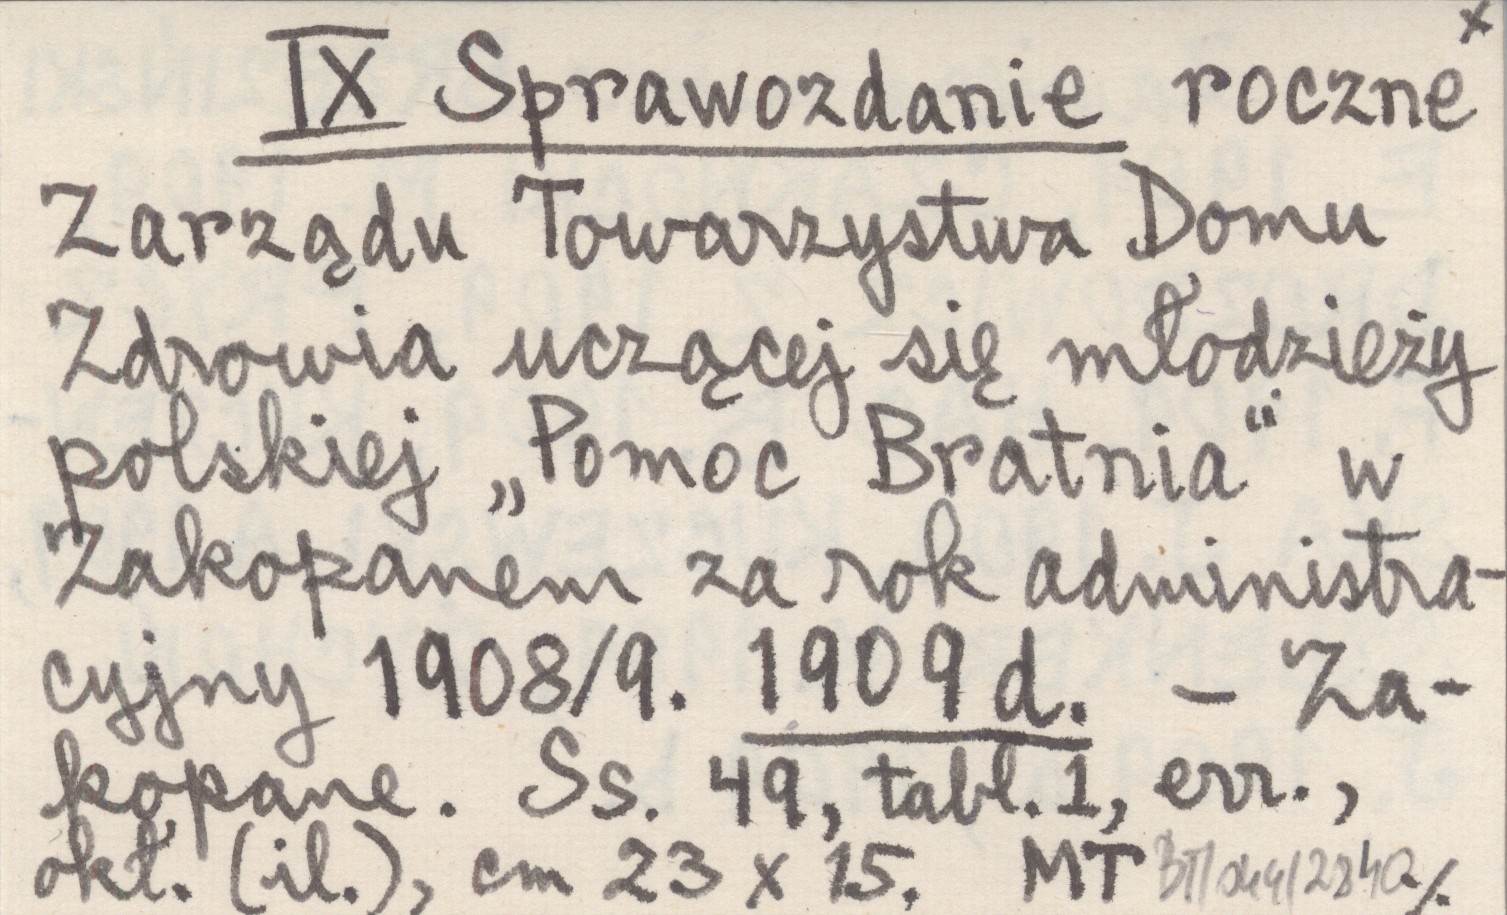 x
IX Sprawozdanie roczne
Zarządu Towarzystwa Domu
Zdrowia uczącej się młodzieży
polskiej „Pomoc Bratnia“ w
Zakopanem za rok administra-
cyjny 1908/9. 1909 d. – Za-
kopane. Ss. 49, tabl. 1, err.,
okł. (il.), cm 23 x 15. MT